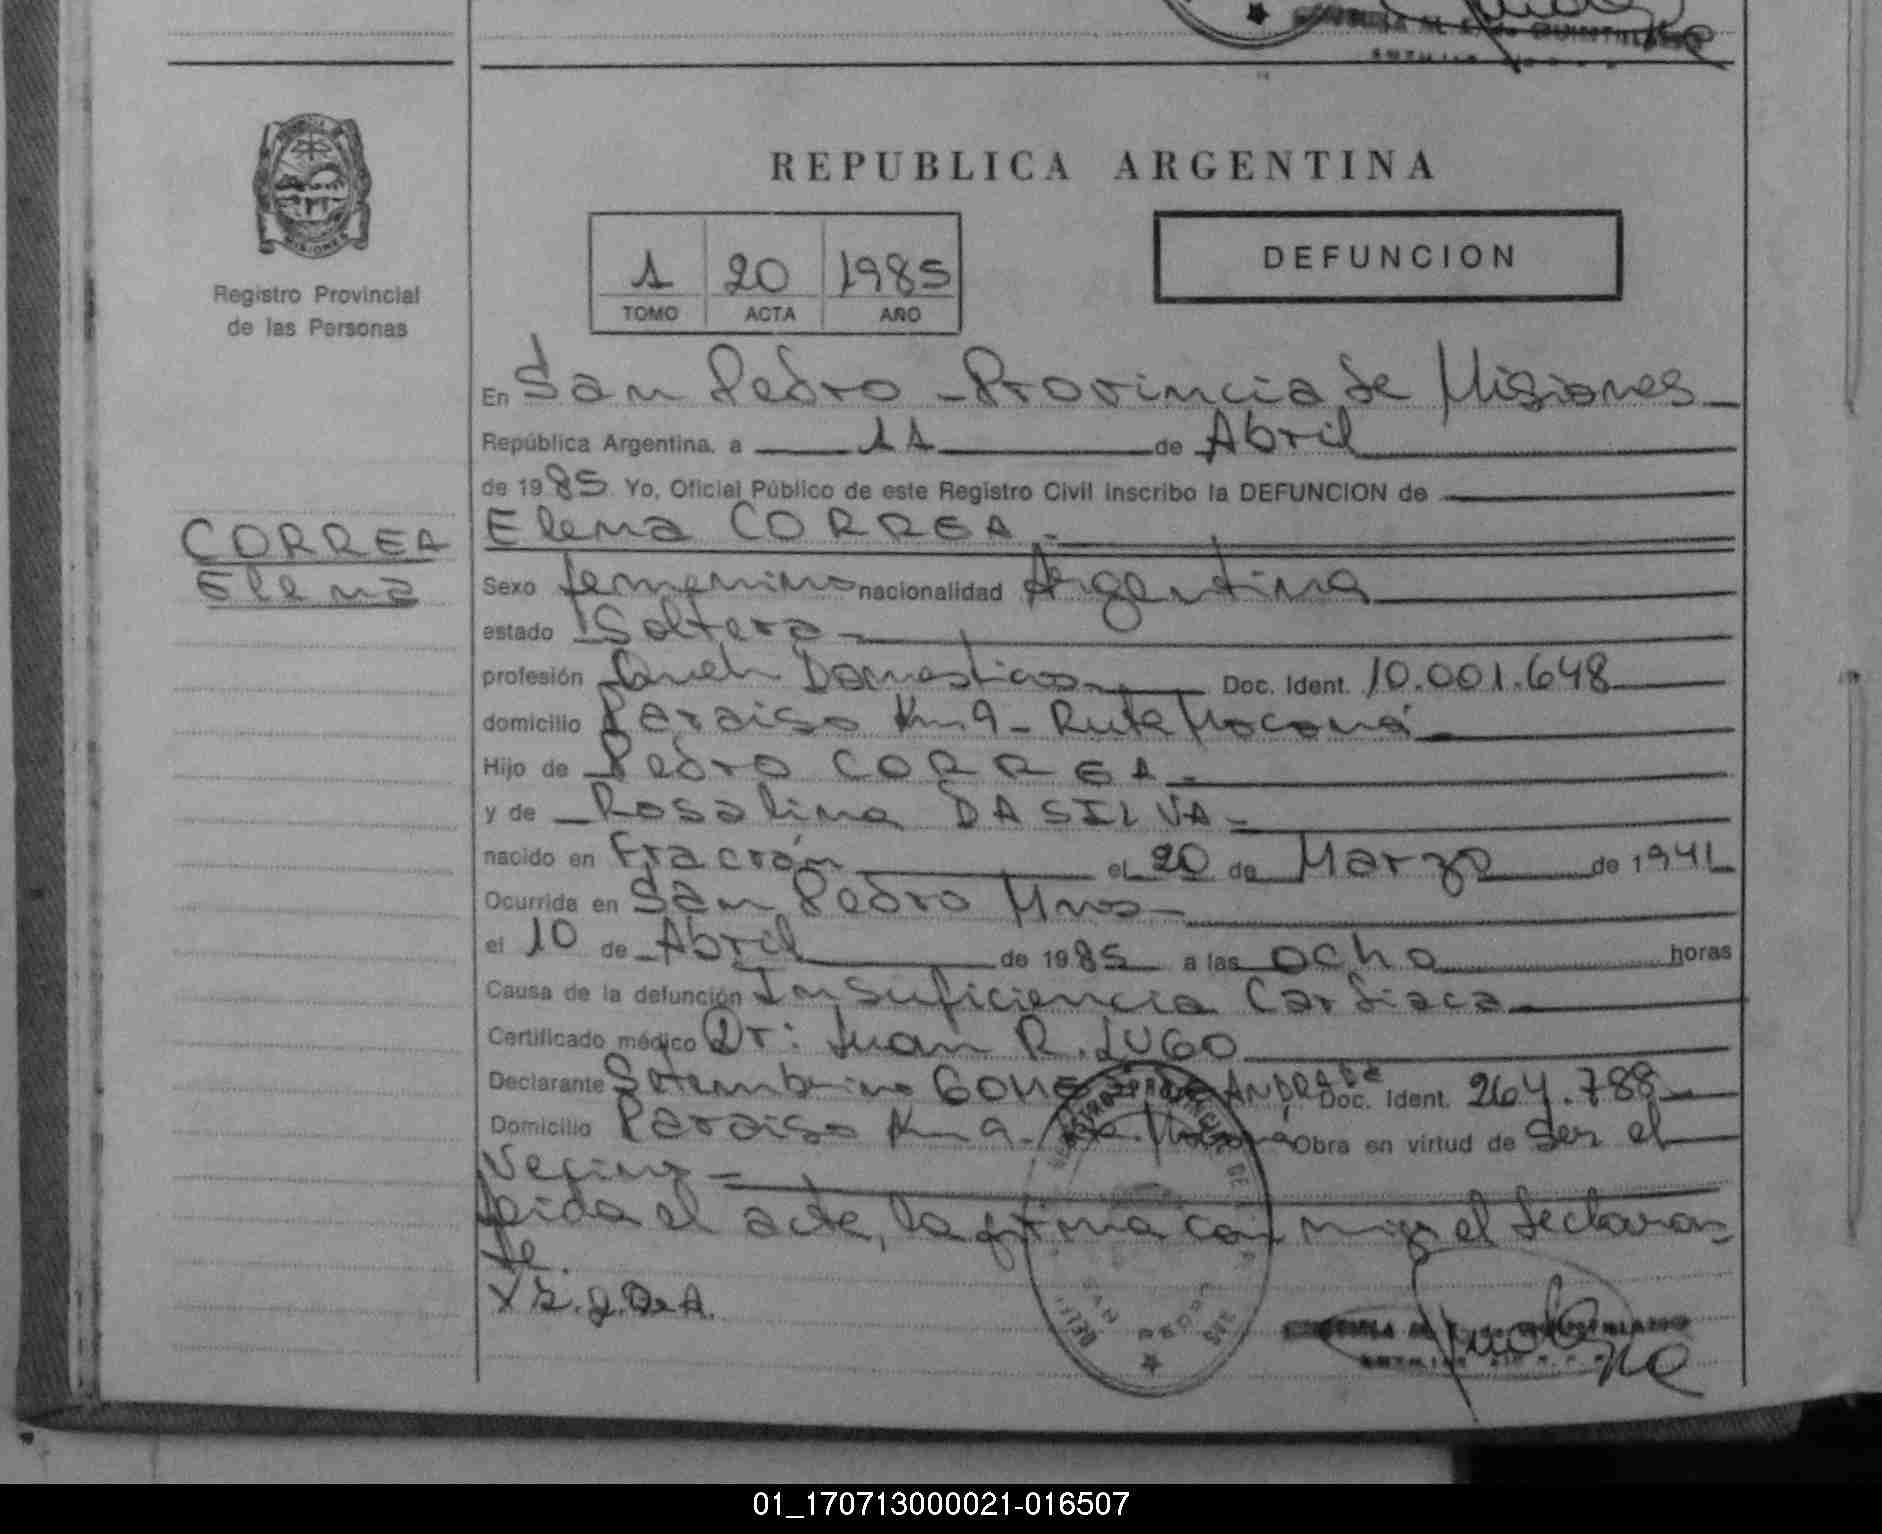 REPUBLICA ARGENTINA
MISIONES
Registro Provincial
de las Personas
1 20 1985
TOMO ACTA AÑO
DEFUNCION
En San Pedro - Provincia de Misiones
República Argentina, a 11 de Abril
de 1985. Yo, Oficial Público de este Registro Civil inscribo la DEFUNCION de
CORREA
Elena
Elena CORREA.-
Sexo femenino nacionalidad Argentina
estado Soltera-
profesión Queh Domesticos- Doc. Ident. 10.001.648
domicilio Paraiso Km 9 - Ruta Moconá-
Hijo de Pedro CORREA-
y de Rosalina DA SILVA-
nacido en Fracrán el 20 de Marzo de 1941
Ocurrida en San Pedro Mnes-
el 10 de Abril de 1985 a las ocho horas
Causa de la defunción Insuficiencia Cardiaca-
Certificado médico Dr: Juan R. LUGO
Declarante Setembrino DE ANDRADE Doc. Ident. 264.788
Domicilio Paraiso Km 9- Obra en virtud de ser el
Vecino-
Leida el acta, la firma con migo el declaran-
te.
01_170713000021-016507